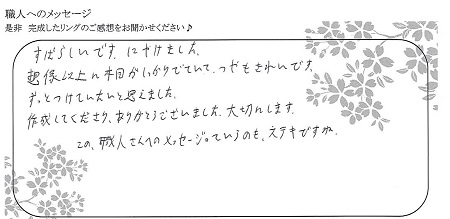 職人へのメッセージ
是非 完成したリングのご感想をお聞かせください♪
すばらしいです。にやけました。
想像以上に木目がしっかりでていて、つやもきれいです。
ずっとつけていたいと思えました。
作成してくださり、ありがとうございました。大切にします。
この、職人さんへのメッセージっていうのも、ステキですね。